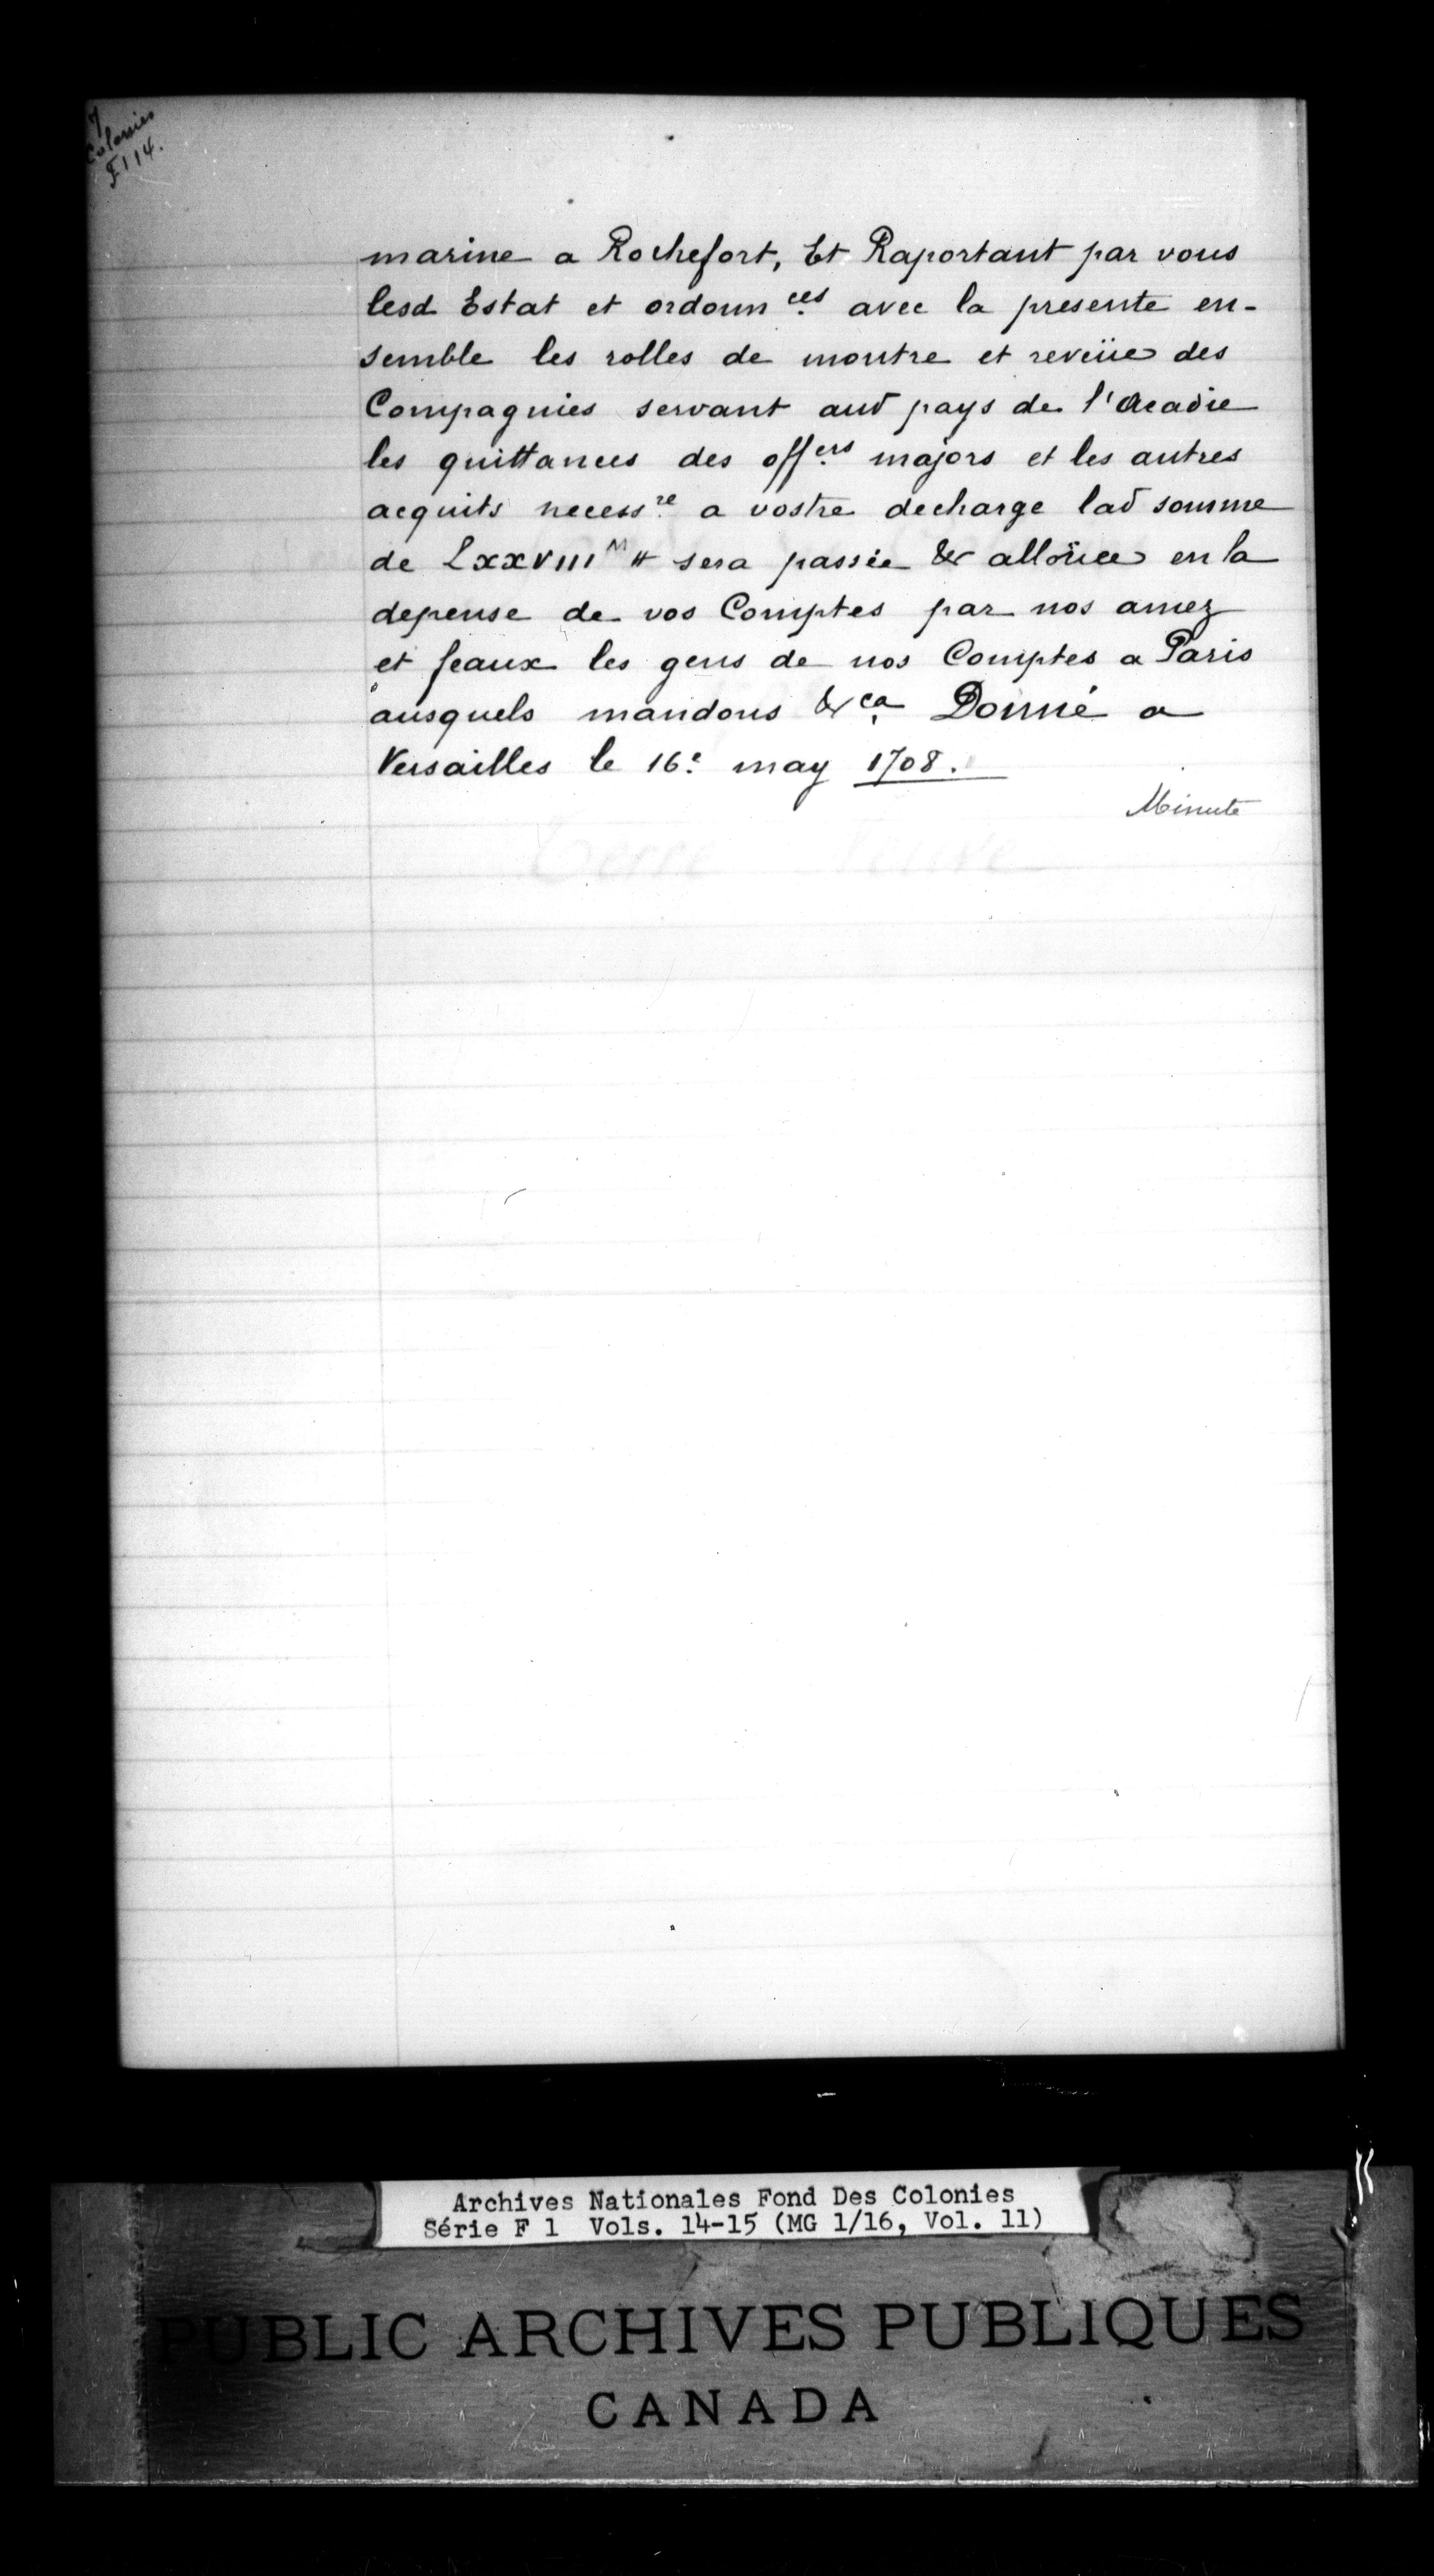 7
Colonies
F114.
marine a Rochefort, Et Raportant par vous
lesd Estat et ordonn ces avec la presente en-
semble les rolles de montre et reveüe des
Compagnies servant aud pays de l'Acadie
les quittances des offers majors et les autres
acquits necessre a vostre decharge lad somme
de LxxVIII M ₶ sera passée & alloüee en la
depense de vos Comptes par nos amez
et feaux les gens de nos Comptes a Paris
ausquels mandons &ca Donné a
Versailles le 16e may 1708.
Minute
Terre Neuve
Archives Nationales Fond Des Colonies
Série F 1 Vols. 14-15 (MG 1/16, Vol. 11)
PUBLIC ARCHIVES PUBLIQUES
CANADA